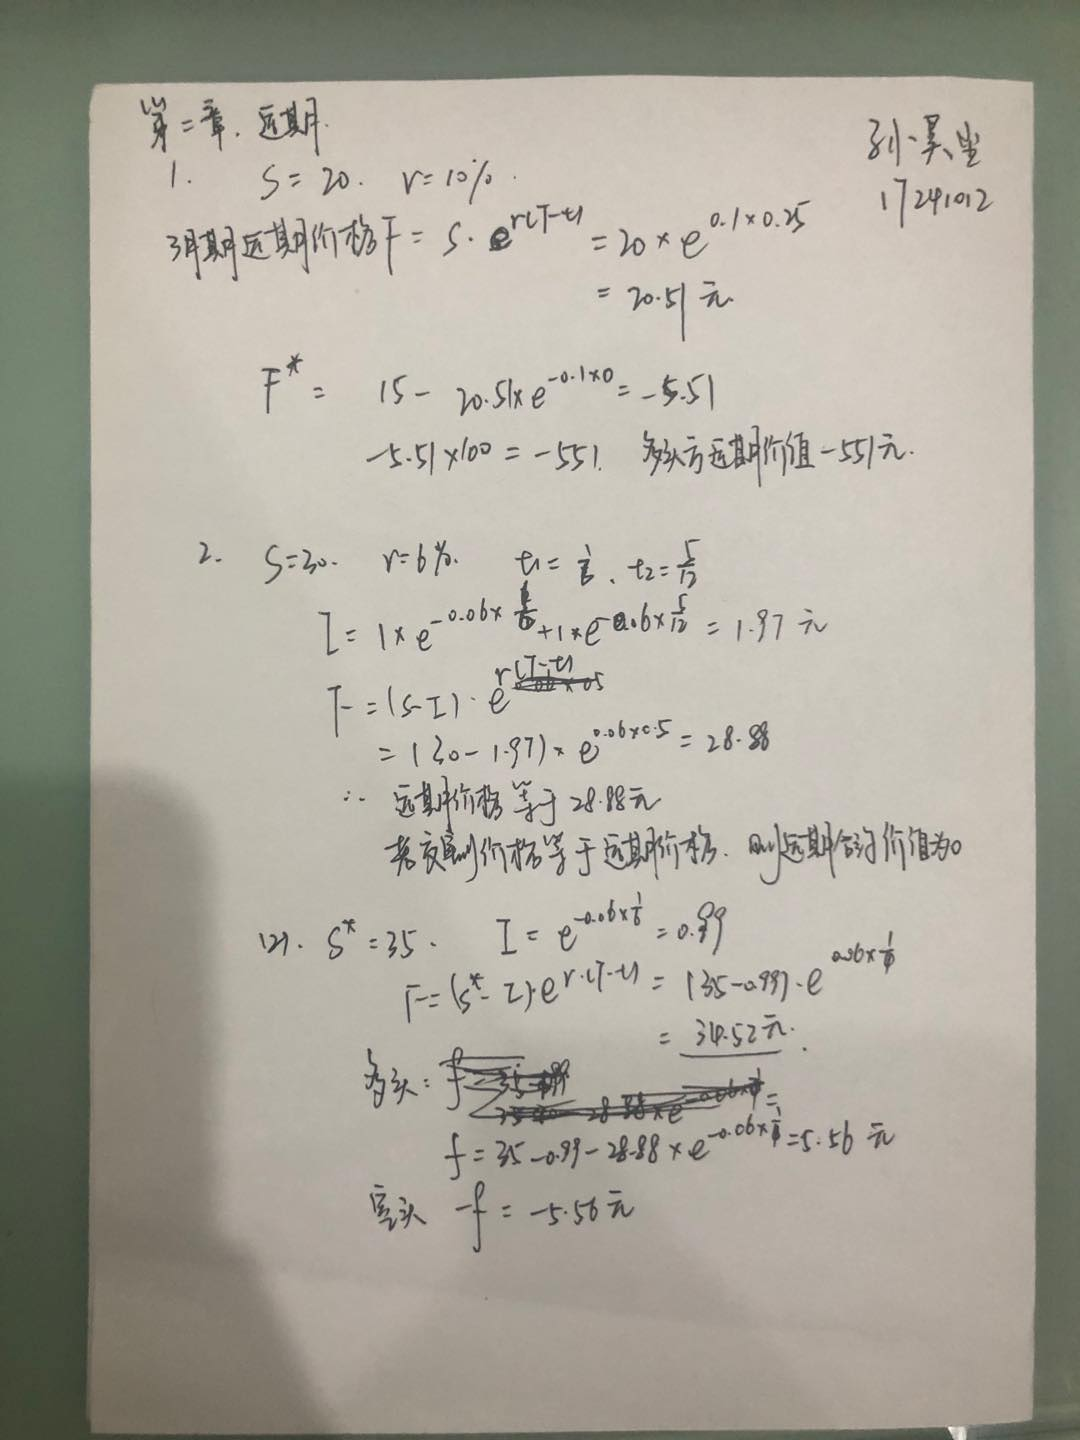 第二章. 远期.
孙昊坐
17241012
1. S=20. r=10%.
3月期远期价格F = S·e^{r(T-t)} = 20×e^{0.1×0.25}
= 20.51元.
F* = 15 - 20.51×e^{-0.1×0} = -5.51
-5.51×100 = -551. 多头方远期价值-551元.
2. S=30. r=6%. t1=1/6. t2=5/12
I = 1×e^{-0.06×} + 1×e^{-0.06×5/12} = 1.97元
F = (S-I)·e^{r(T-t)}
= (30-1.97)×e^{0.06×0.5} = 28.88
∴ 远期价格等于28.88元
若交割价格等于远期价格. 则远期合约价值为0
(2). S*=35. I = e^{-0.06×1/6} = 0.99
F = (S*-I)·e^{r·(T-t)} = (35-0.99)·e^{0.06×1/4}
= 34.52元.
多头:
f = 35-0.99-28.88×e^{-0.06×1/4} = 5.56元
空头 -f = -5.56元